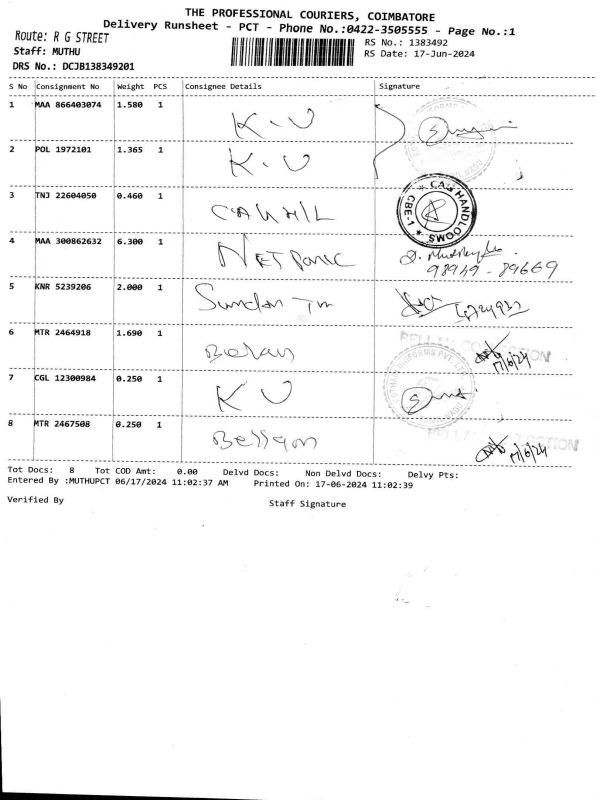 THE PROFESSIONAL COURIERS, COIMBATORE
Delivery Runsheet - PCT - Phone No.:0422-3505555 - Page No.:1
Route: R G STREET
RS No.: 1383492
Staff: MUTHU
RS Date: 17-Jun-2024
DRS No.: DCJB138349201
S No Consignment No Weight PCS Consignee Details Signature
1 MAA 866403074 1.580 1 K.U
2 POL 1972101 1.365 1 K.U
3 TNJ 22604050 0.460 1 CBE-1 * CAG HANDLOOMS *
4 MAA 300862632 6.300 1 NETPanic
98949-89669
5 KNR 5239206 2.000 1 Sundar Tm
6 MTR 2464918 1.690 1 17/6/24
7 CGL 12300984 0.250 1 K U
8 MTR 2467508 0.250 1 17/6/24
Tot Docs: 8 Tot COD Amt: 0.00 Delvd Docs: Non Delvd Docs: Delvy Pts:
Entered By :MUTHUPCT 06/17/2024 11:02:37 AM Printed On: 17-06-2024 11:02:39
Verified By Staff Signature